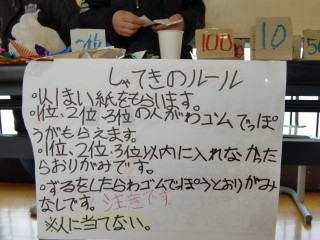 2位
100
10
50
しゃてきのルール
○1人1まい紙をもらいます。
○1位、2位、3位の人がわゴムでっぽ
うがもらえます。
○1位、2位、3位以内に入れなかった
らおりがみです。
○ずるをしたらわゴムでっぽうとおりがみ
なしです。注意です
※人に当てない。